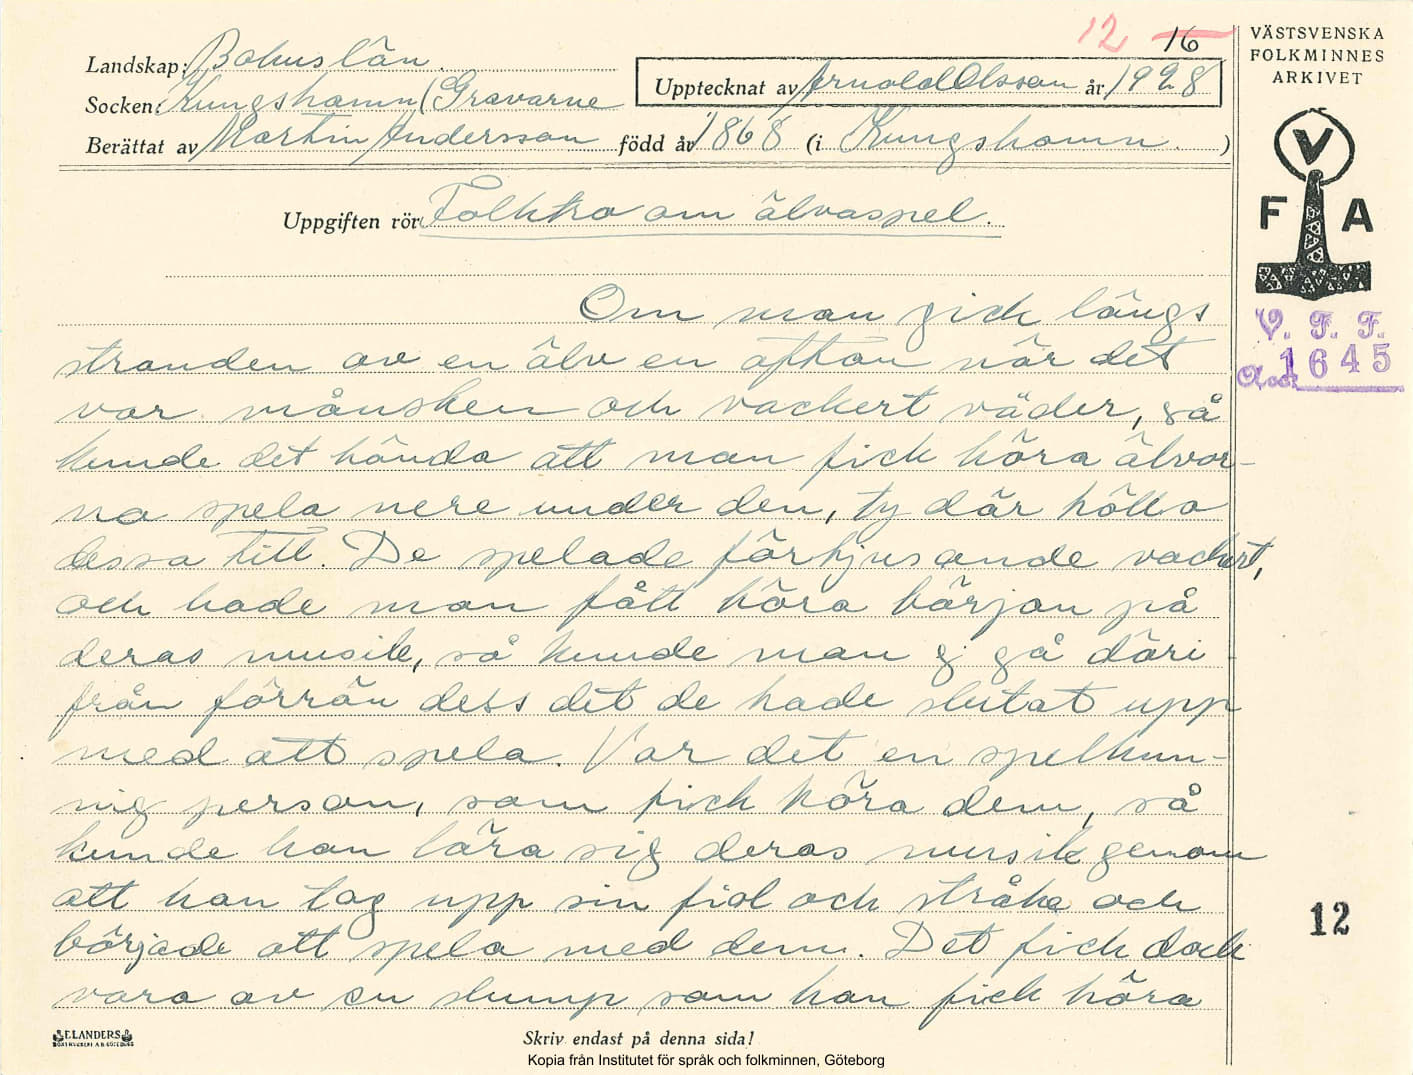 12 16
Landskap: Bohuslän.
Upptecknat av Arnold Olsson år 1928
Socken: Kungshamn (Gravarne
Berättat av Martin Andersson född år 1868 (i Kungshamn. )
Uppgiften rör Folktro om älvaspel.
Om man gick längs
stranden av en älv en afton när det
var månsken och vackert väder, så
kunde det hända att man fick höra älvor-
na spela nere under den, ty där höllo
dessa till. De spelade förtjusande vackert,
och hade man fått höra början på
deras musik, så kunde man ej gå däri-
från förrän dess det de hade slutat upp
med att spela. Var det en spelkun-
nig person, som fick höra dem, så
kunde han lära sig deras musik genom
att han tog upp sin fiol och stråke och
började att spela med dem. Det fick dock
vara av en slump som han fick höra
Skriv endast på denna sida!
Kopia från Institutet för språk och folkminnen, Göteborg
ELANDERS
VÄSTSVENSKA
FOLKMINNES
ARKIVET
V
F A
V. F. F.
Acc. 1645
12